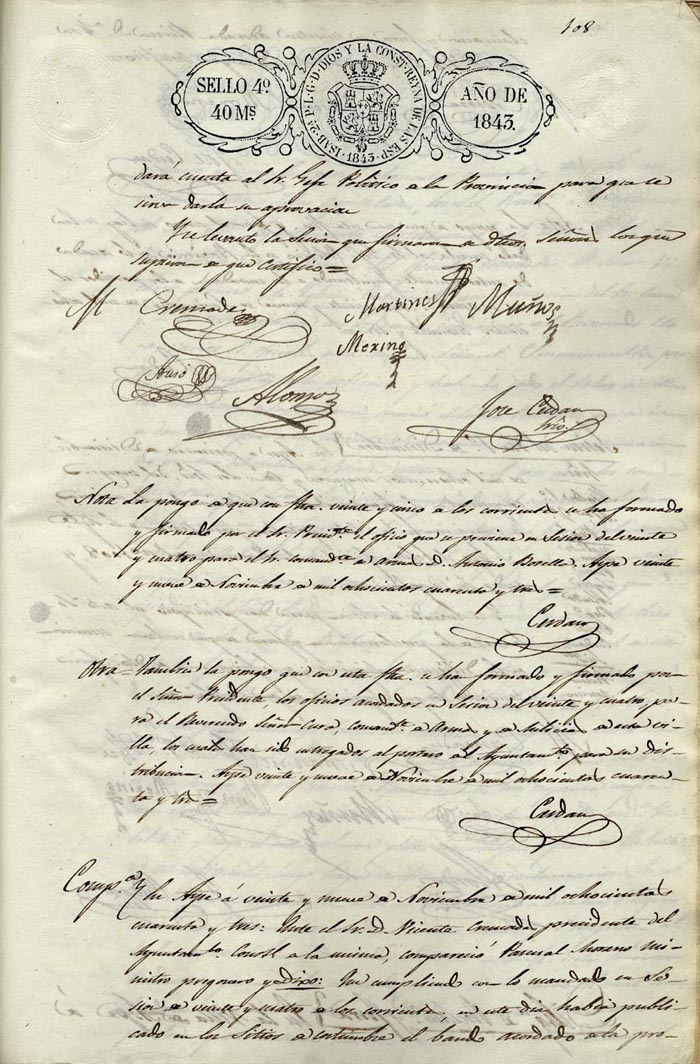 108
SELLO 4º
40 Ms
ISAB. 2ª P. L. G. D. DIOS Y LA CONST. REYNA DE LAS ESP.
1843.
AÑO DE
1843.
dará cuenta al Sr. Gefe Politico a la Provincia para que se
sirva darla su aprovacion
Y se levanto la Sesion que firmaron dhos. Señores los que
supieron de que certifico =
Cremades
Martines
Muños
Merino
Alonso
Jose Cerdan
Srio.
Nota La pongo de que con fha. veinte y cinco a los corrientes se ha formado
y firmado por el Sr. Presidte. el oficio que se previene en Sesion del veinte
y cuatro para el Sr. comandte. a armas D. Antonio Bonella. Aspe veinte
y nueve a Noviembre a mil ochocientos cuarenta y tres =
Cerdan
Otra = Tambien la pongo que con esta fha. se han formado y firmado por
el Señor Presidente, los oficios acordados en Sesion del veinte y cuatro, pa-
ra el Reverendo Señor Cura, comandte. a Armas y a Milicias a esta vi-
lla, los cuales han sido entregados al portero del Ayuntamto. para su dis-
tribucion. Aspe veinte y nueve a Noviembre a mil ochocientos cuaren-
ta y tres =
Cerdan
Compª. } En Aspe á veinte y nueve a Noviembre a mil ochocientos
cuarenta y tres: Ante el Sr. D. Vicente Cremades presidente del
Ayuntamto. Constl. a la misma, compareció Pascual Moreno mi-
nistro pregonero y dixo: Que cumpliendo con lo mandado en Se-
sion a veinte y cuatro a los corrientes, en este dia habia publi-
cado en los Sitios a costumbre el bando acordado a la pro-